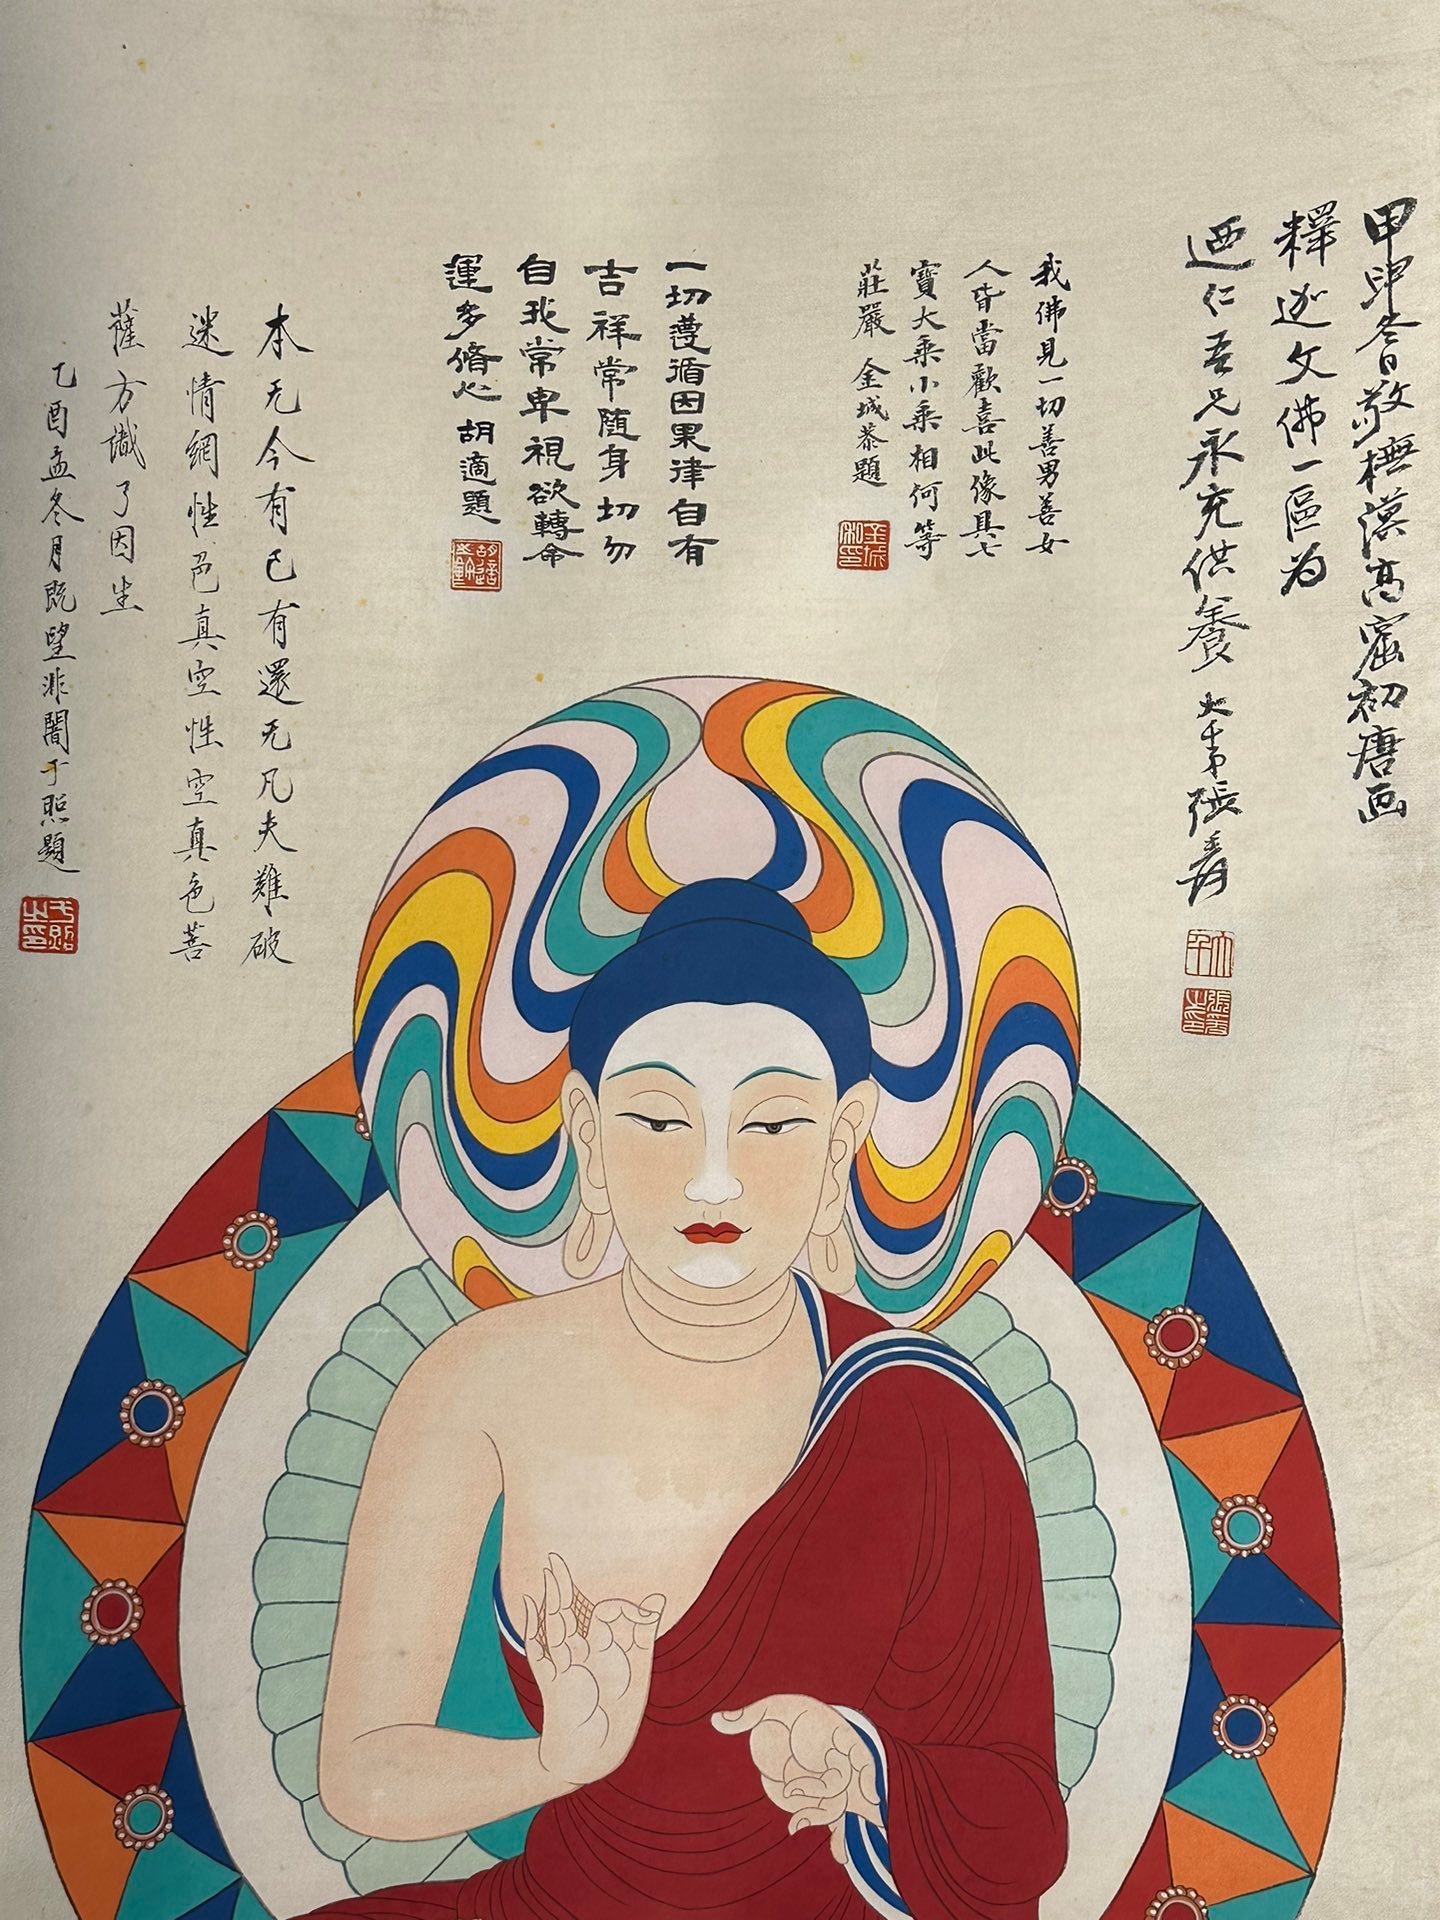 甲申冬日敬橅漠高窟初唐画
釋迦文佛一區为
迺仁吾兄永充供養 大千弟張爰
大千
張爰之印
我佛見一切善男善女
人皆當歡喜此像具七
寶大乘小乘相何等
莊嚴 金城恭題
一切遵循因果律自有
吉祥常随身切勿
自我常卑視欲轉命
運多脩心 胡適題
本无今有已有還无凡夫難破
迷情網性色真空性空真色菩
薩方識了因生
乙酉孟冬月既望非闇于照題
于照之印